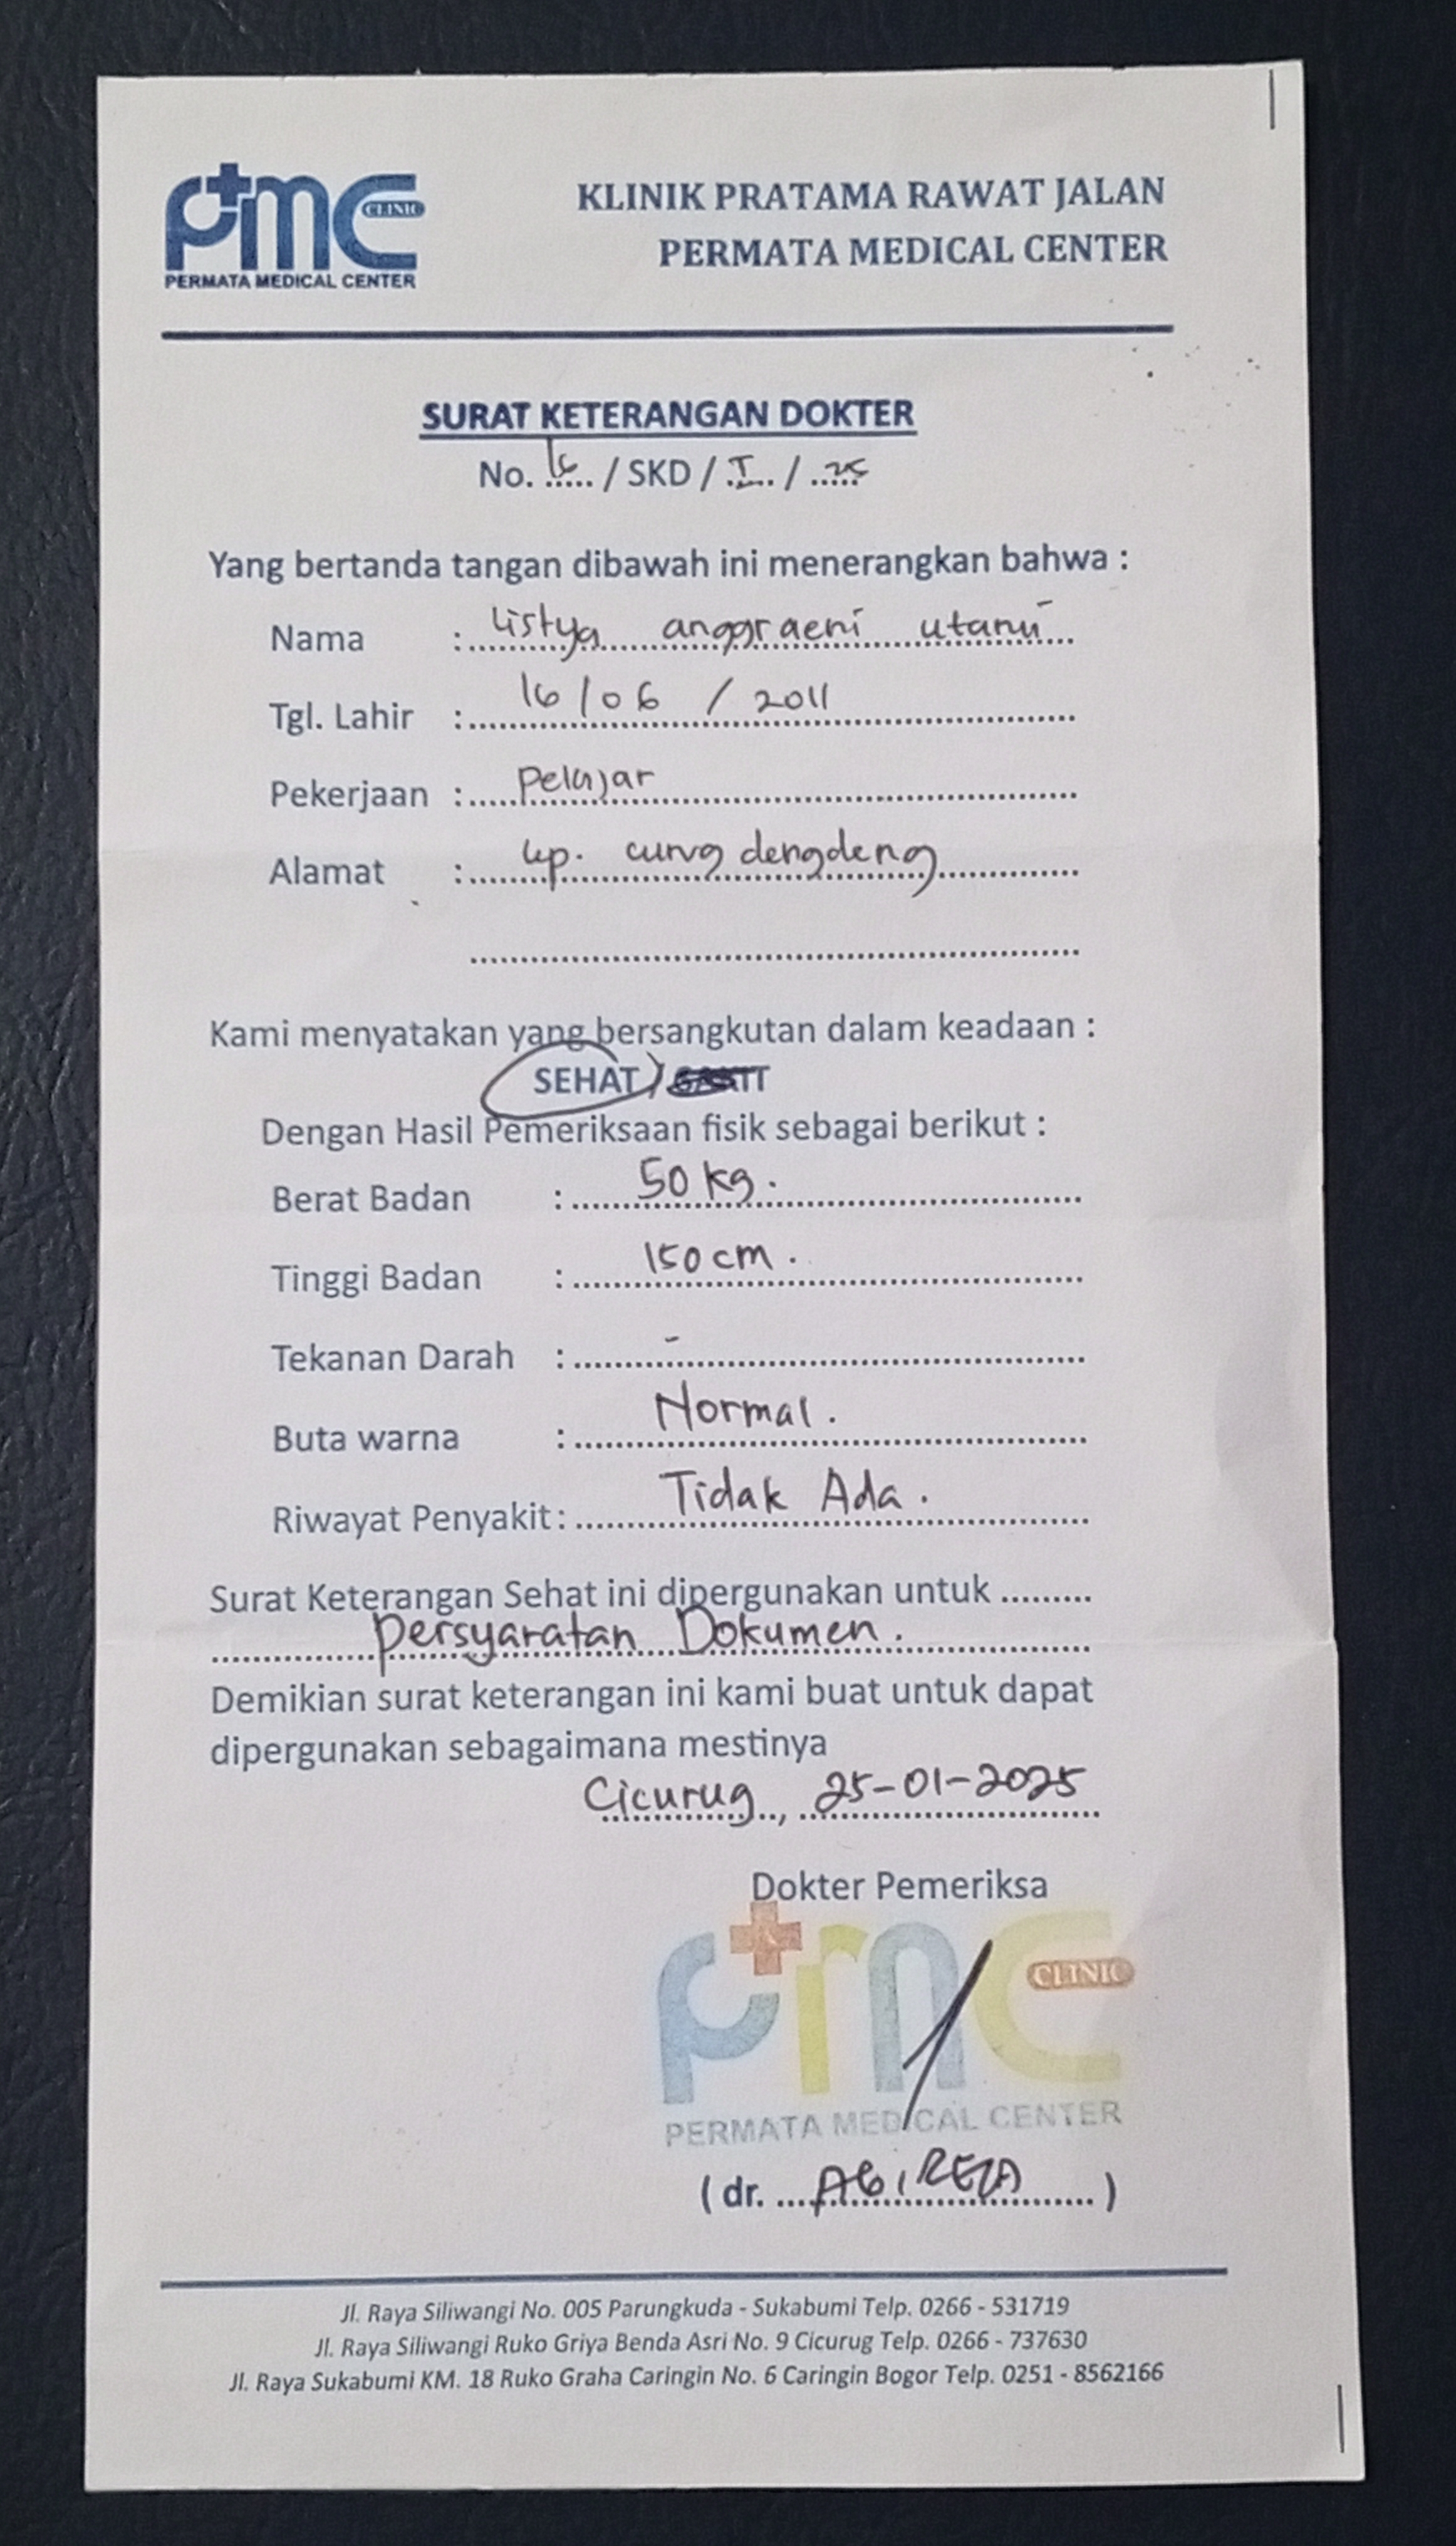 PMC CLINIC
PERMATA MEDICAL CENTER
KLINIK PRATAMA RAWAT JALAN
PERMATA MEDICAL CENTER
SURAT KETERANGAN DOKTER
No. ..... / SKD / .I.. / ..25..
Yang bertanda tangan dibawah ini menerangkan bahwa :
Nama : listya anggraeni utami
Tgl. Lahir : 16 / 06 / 2011
Pekerjaan : Pelajar
Alamat : kp. curug dengdeng
Kami menyatakan yang bersangkutan dalam keadaan :
SEHAT /
Dengan Hasil Pemeriksaan fisik sebagai berikut :
Berat Badan : 50 kg.
Tinggi Badan : 150 cm.
Tekanan Darah : -
Buta warna : Normal.
Riwayat Penyakit : Tidak Ada.
Surat Keterangan Sehat ini dipergunakan untuk .........
Persyaratan Dokumen.
Demikian surat keterangan ini kami buat untuk dapat
dipergunakan sebagaimana mestinya
Cicurug, 25-01-2025
Dokter Pemeriksa
PMC CLINIC
PERMATA MEDICAL CENTER
( dr. )
Jl. Raya Siliwangi No. 005 Parungkuda - Sukabumi Telp. 0266 - 531719
Jl. Raya Siliwangi Ruko Griya Benda Asri No. 9 Cicurug Telp. 0266 - 737630
Jl. Raya Sukabumi KM. 18 Ruko Graha Caringin No. 6 Caringin Bogor Telp. 0251 - 8562166